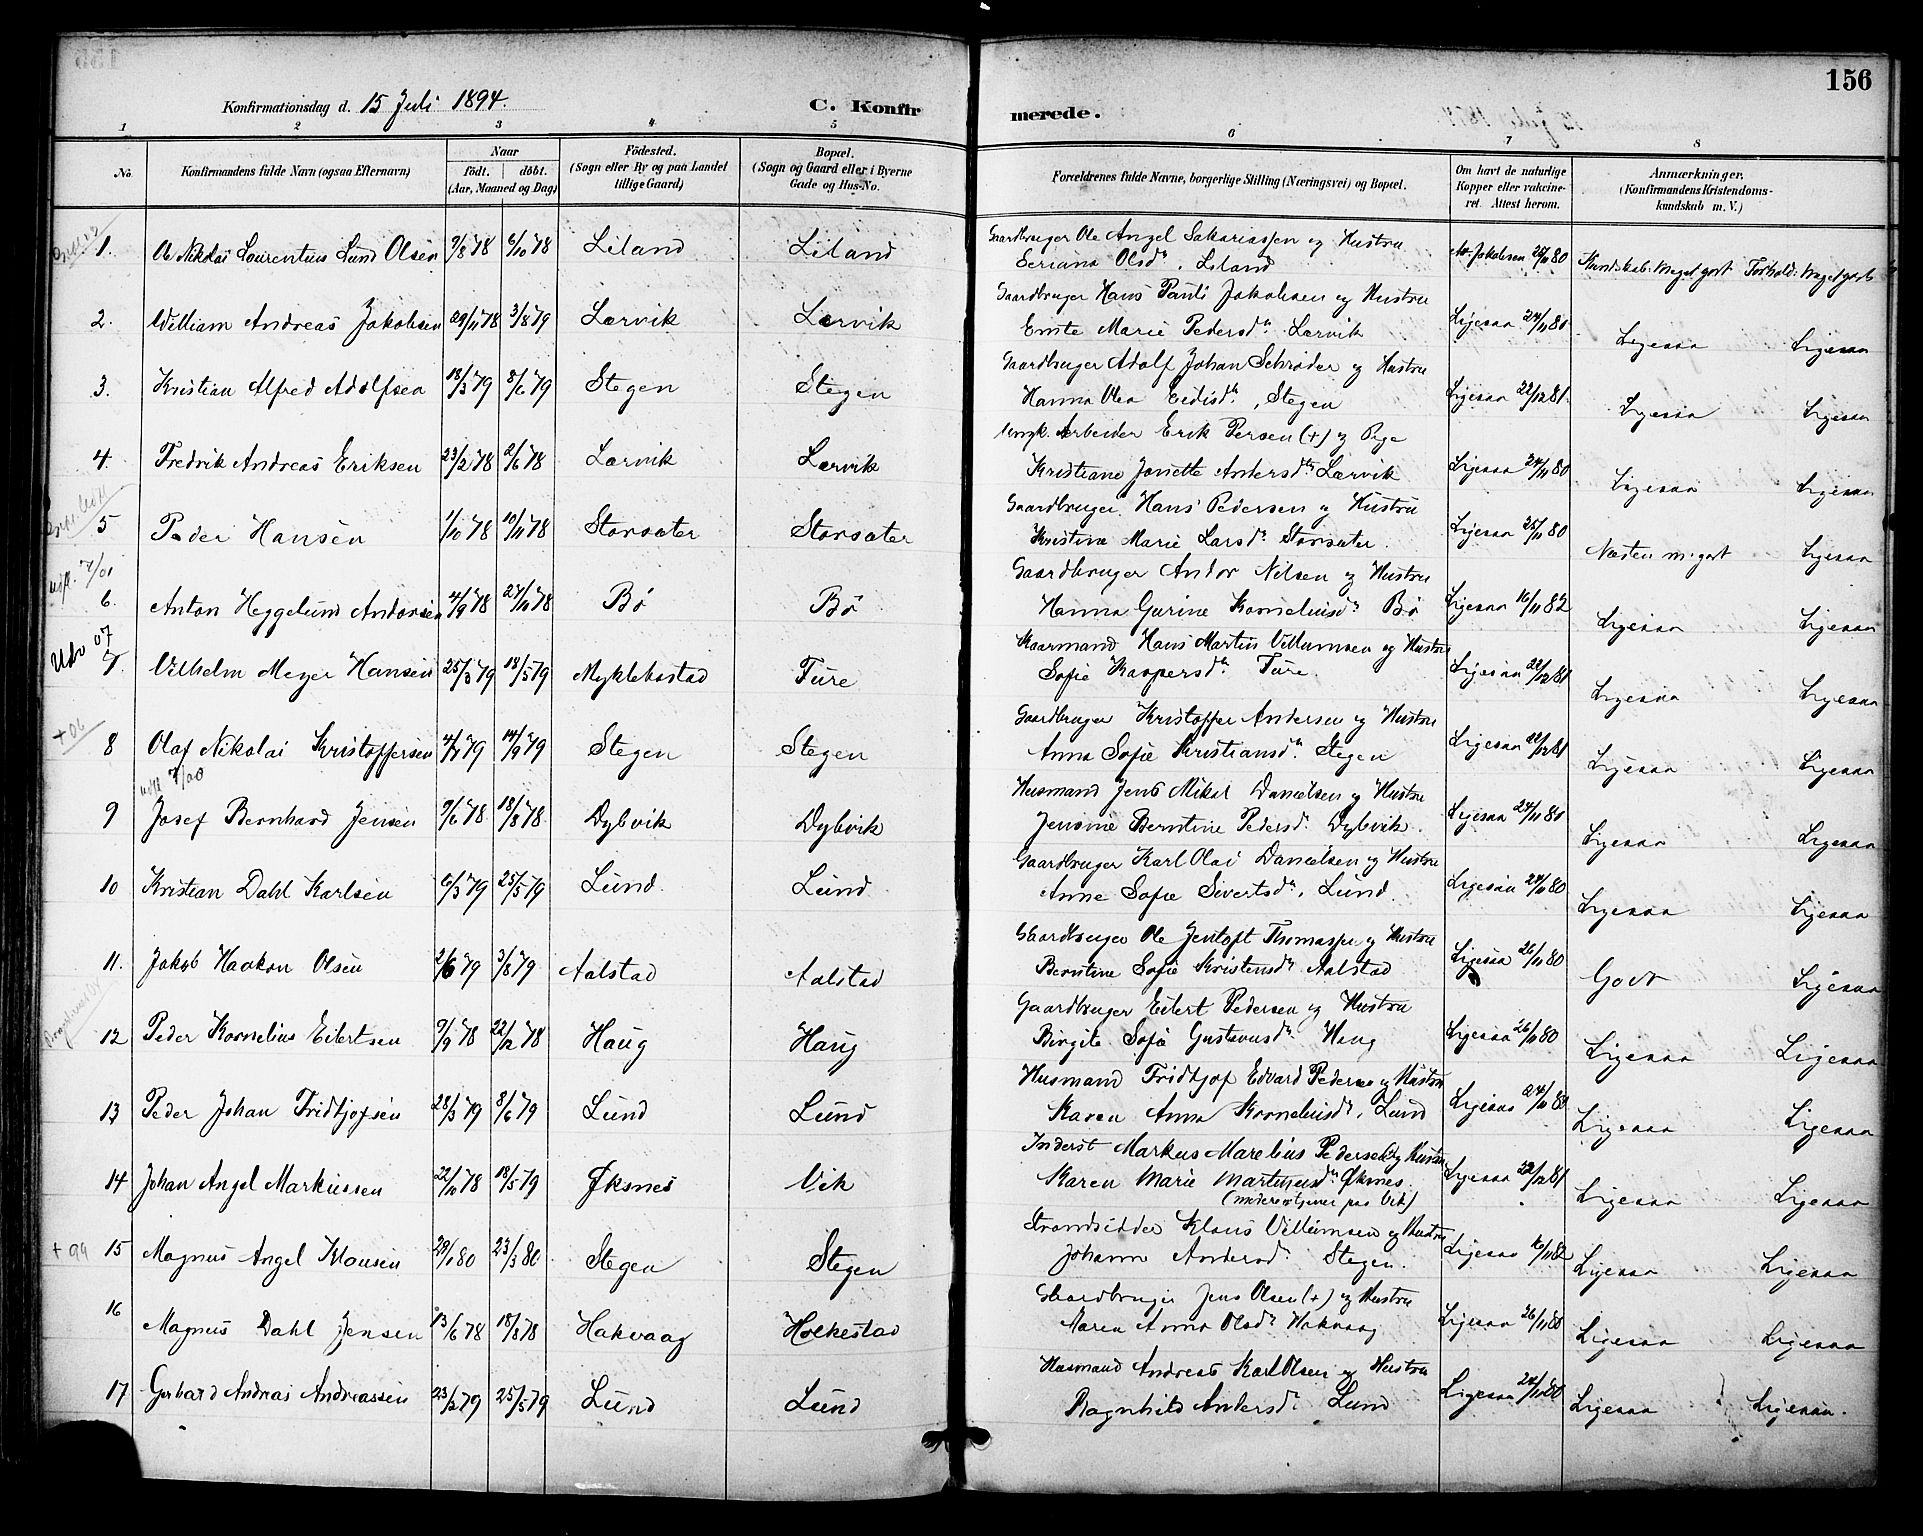 156
Konfirmationsdag d. 15 Juli 1894.
C. Konfir
merede.
1 2 3 4 5 6 7 8
No.
Konfirmandens fulde Navn (ogsaa Efternavn)
Naar
födt. döbt.
(Aar, Maaned og Dag)
Födested.
(Sogn eller By og paa Landet
tillige Gaard)
Bopæl.
(Sogn og Gaard eller i Byerne
Gade og Hus-No.
Forældrenes fulde Navne, borgerlige Stilling (Næringsvei) og Bopæl.
Om havt de naturlige
Kopper eller vakcine-
ret. Attest herom.
Anmærkninger.
(Konfirmandens Kristendoms-
kundskab m. V.)
1. Ole Nikolai Laurentius Lund Olsen 9/8 78 6/10 78 Liland Liland
Gaardbruger Ole Angel Sakariassen og Hustru
Seriana Olsdr. Liland
Jakobsen 25/11 80 Kundskab: meget godt Forhold: meget godt
2. William Andreas Jakobsen 29/11 78 3/8 79 Lærvik Lærvik
Gaardbruger Hans Pauli Jakobsen og Hustru
Marie Pedersdr. Lærvik
Ligesaa 24/11 80 Ligesaa Ligesaa
3. Kristian Alfred Adolfsen 18/3 79 8/6 79 Stegen Stegen
Gaardbruger Adolf Johan Schrøder og Hustru
Hanna Olea , Stegen
Ligesaa 22/12 81. Ligesaa Ligesaa
4. Fredrik Andreas Eriksen 23/2 78 2/6 78 Lærvik Lærvik
Arbeider Erik Persen (+) og Pige
Kristiane Jonette Andersdr. Lærvik
Ligesaa 24/11 80 Ligesaa Ligesaa
5 Peder Hansen 1/10 78 10/11 78 Storsæter Storsæter
Gaardbruger Hans Pedersen og Hustru
Kristine Marie Larsdr. Storsæter.
Ligesaa 25/11 80 Næsten m. godt Ligesaa
utfl. 7/01
6. Anton Heggelund Andorsen 4/9 78 27/10 78 Bø Bø
Gaardbruger Andor Nilsen og Hustru
Hanna Gurine Korneliusdr. Bø
Ligesaa 16/11 82 Ligesaa Ligesaa
Udv 07
7. Vilhelm Meyer Hansen 25/3 79 18/5 79 Myklebostad Fure
Kaarmand Hans Martin Villumsen og Hustru
Sofie Kaspersdr. Fure.
Ligesaa 22/12 81 Ligesaa Ligesaa
+ 06
8 Olaf Nikolai Kristoffersen 4/7 79 14/9 79 Stegen Stegen
Gaardbruger Kristoffer Andersen og Hustru
Anna Sofie Kristiansdr. Stegen
Ligesaa 22/12 81 Ligesaa Ligesaa
utfl 7/00
9 Josef Bernhard Jensen 9/6 78 18/8 78. Dybvik Dybvik
Husmand Jens Mikal Danielsen og Hustru
Jensine Berntine Pedersd. Dybvik.
Ligesaa 24/11 80 Ligesaa Ligesaa
10 Kristian Dahl Karlsen 6/3 79 25/5 79 Lund. Lund
Gaardbruger Karl Olai Danielsen og Hustru
Anne Sofie Sivertsdr. Lund.
Ligesaa 24/11 80 Ligesaa Ligesaa
11. Jakob Haakon Olsen 2/6 79 3/8 79 Aalstad Aalstad
Gaardbruger Ole Jentoft Thomassen og Hustru
Berntine Sofie Kristensdr. Aalstad
Ligesaa 26/11 80 Godt Ligesaa
12 Peder Kornelius Eilertsen 9/9 78 22/12 78 Haug Haug
Gaardbruger Eilert Pedersen og Hustru
Birgite Sofie Gustavusdr. Haug
Ligesaa 26/11 80 Ligesaa Ligesaa
13 Peder Johan Fridtjofsen 28/3 79 8/6 79 Lund Lund
Husmand Fridtjof Edvard Pedersen og Hustru
Karen Anna Korneliusdr. Lund
Ligesaa 24/11 80 Ligesaa Ligesaa
14 Johan Angel Markussen 22/10 78 18/5 79 Øksnes Vik
Inderst Markus Marelius Pedersen og Hustru
Karen Marie Martinusdr. Øksnes.
Ligesaa 22/12 81 Ligesaa Ligesaa
+ 99
15 Magnus Angel Klausen 29/1 80 23/3 80 Stegen Stegen
Strandsidder Klaus Villumsen og Hustru
Johanna Andersd. Stegen.
Ligesaa 16/11 82 Ligesaa Ligesaa
16 Magnus Dahl Jensen 13/6 78 18/8 78 Hakvaag Holkestad
Gaardbruger Jens Olsen (+) og Hustru
Maren Anna Olsdr. Hakvaag
Ligesaa 26/11 80 Ligesaa Ligesaa
17 Gerhard Andreas Andreassen 23/2 79 25/5 79 Lund Lund
Husmand Andreas Karl Olsen og Hustru
Ragnhild Andersd. Lund
Ligesaa 24/11 80 Ligesaa Ligesaa.